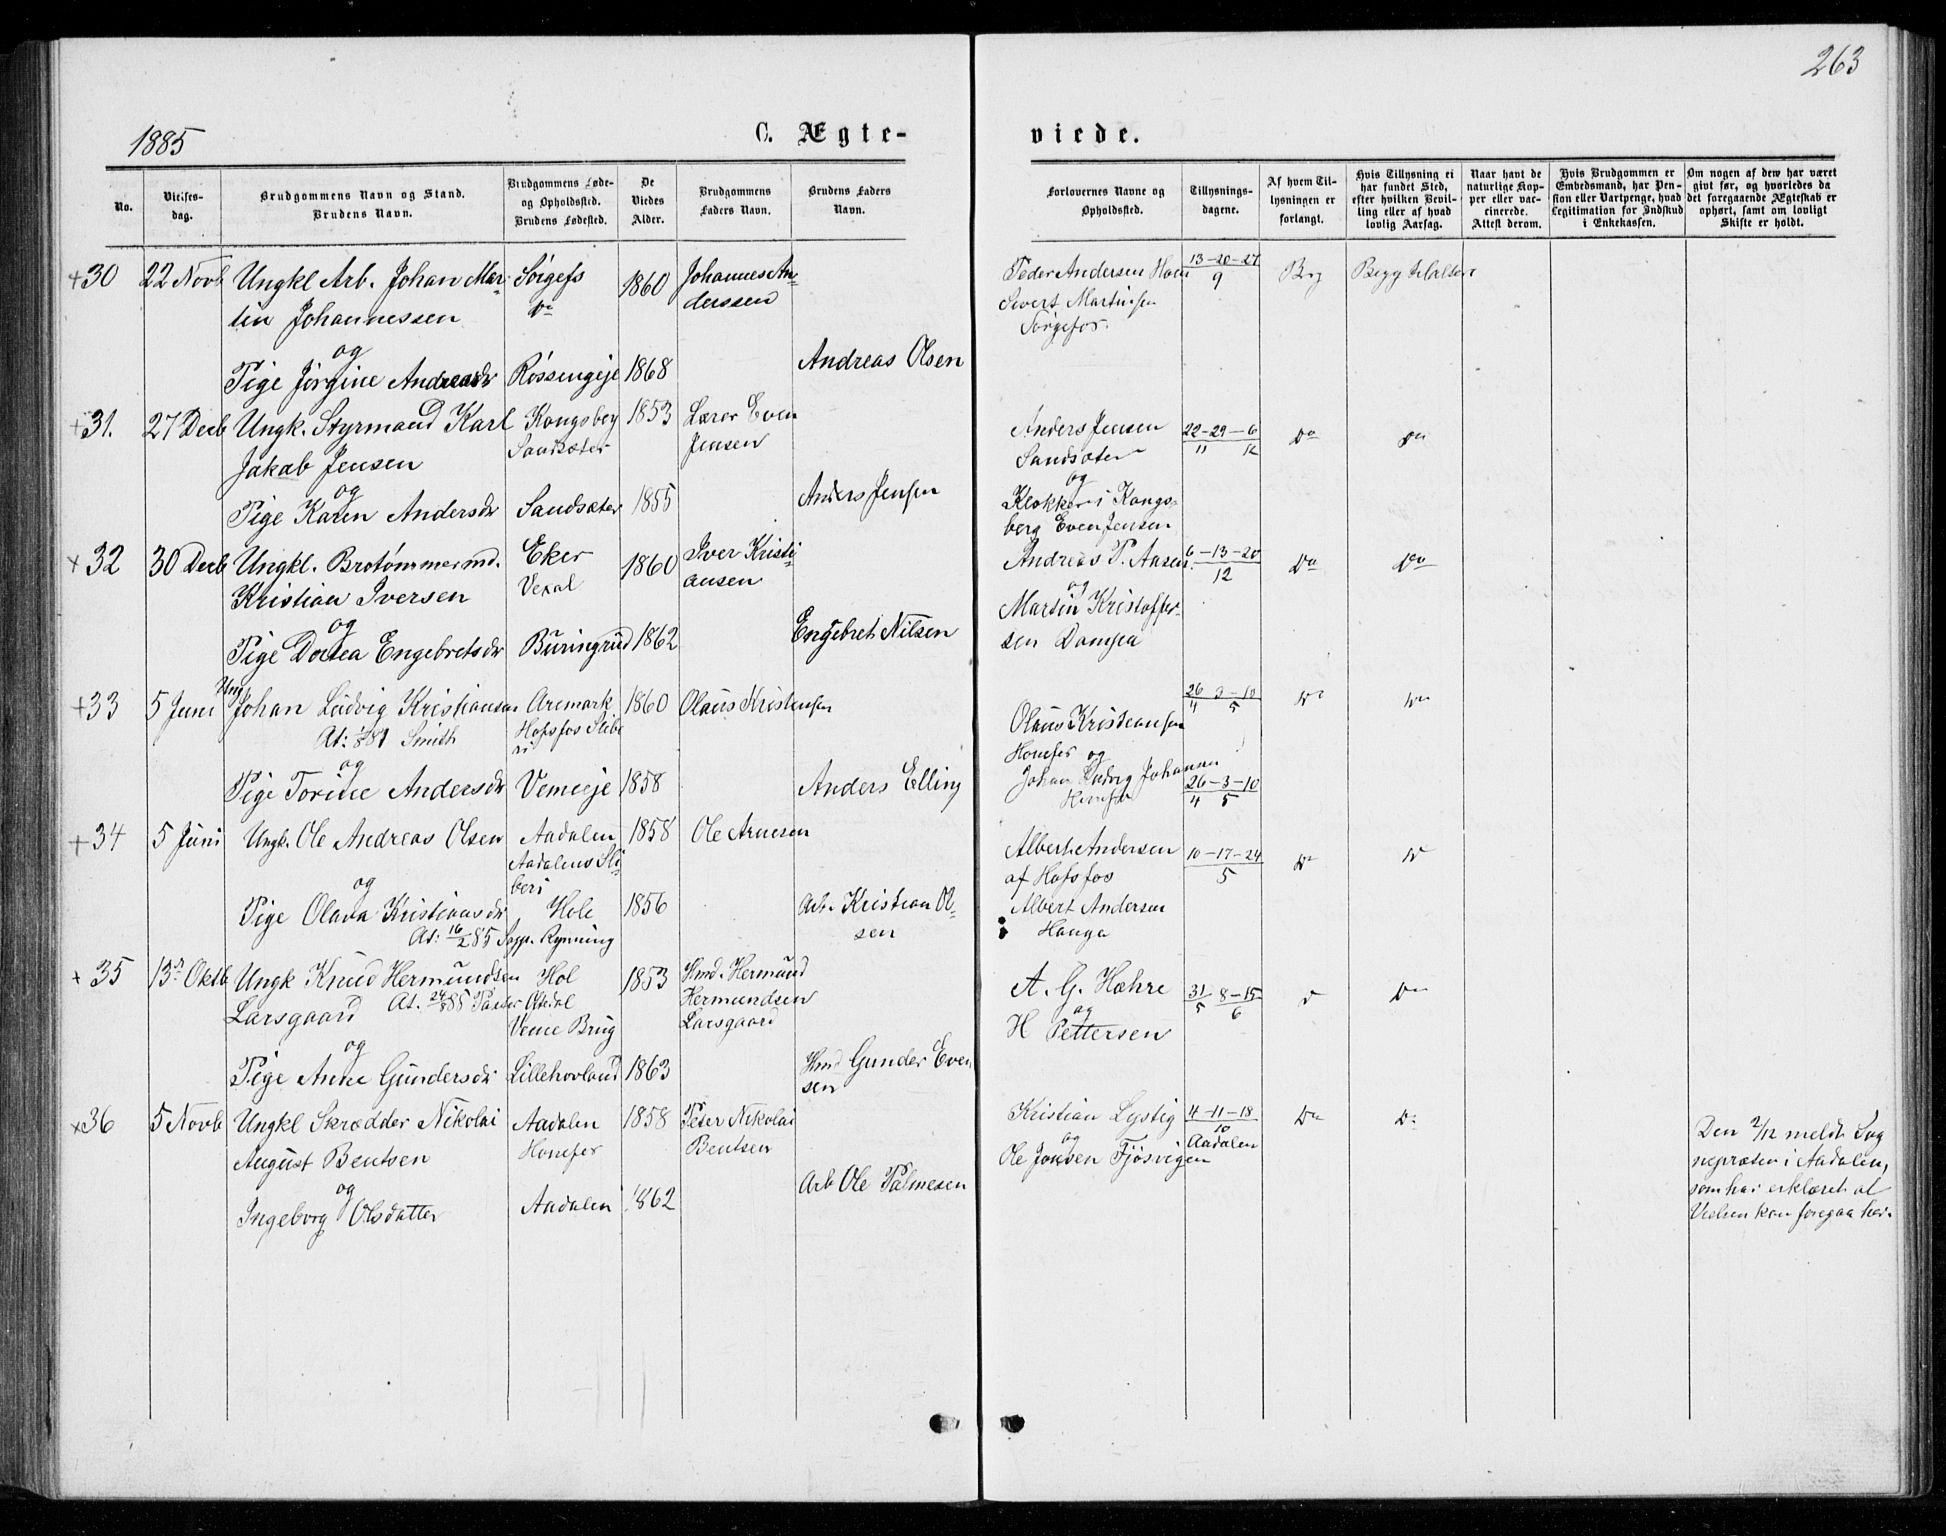 263
1885
C. Ægte-
viede.
No.
Vielses-
dag.
Brudgommens Navn og Stand.
Brudens Navn.
Brudgommens Føde-
og Opholdssted.
Brudens Fødested.
De
Viedes
Alder.
Brudgommens
Faders Navn.
Brudens Faders
Navn.
Forlovernes Navne og
Opholdssted.
Tillysnings-
dagene.
Af hvem Til-
lysningen er
forlangt.
Hvis Tillysning ei
har fundet Sted,
efter hvilken Bevil-
ling eller af hvad
lovlig Aarsag.
Naar havt de
naturlige Kop-
per eller vac-
cinerede.
Attest derom.
Hvis Brudgommen er
Embedsmand, har Pen-
sion eller Vartpenge, hvad
Legitimation for Indskud
i Enkekassen.
Om nogen af dem har været
givt før, og hvorledes da
det foregaaende Ægteskab er
ophørt, samt om lovligt
Skifte er holdt.
+30 22 Novb Ungkl Arb. Johan Mar- Sørgefs 1860 Johannes An-
tin Johannessen Do derssen
og
Pige Jørgine Andreasdr Røssengeje 1868 Andreas Olsen
Peder Andersen 13-20-27 Brg
Sivert Martinsen 9
Sørgefos.
+31. 27 Decb Ungk. Styrmand Karl Kongsberg 1853 Lærer Even
Jakob Jensen Sandsæter Jensen
og
Pige Karen Andersdr Sandsæter 1855 Anders Jensen
Anders Jensen 22-29-6 Do Do
Sandsæter 11 12
og
Klokker i Kongs-
berg Even Jensen
+32 30 Decb Ungkl. Brotømmermd. Eker 1860 Iver Kristi-
Kristian Iversen Vexal ansen
og
Pige Dortea Engebretsdr Buringrud 1862 Engebret Nilsen
Andreas P. Aasen 6-13-20 Do Do
og 12
Martin Kristoffer-
sen Dompa
+33 5 Juni Ung Johan Ludvig Kristiansen Aremark 1860 Olaus Kristensen
At: 81 Smith Hofsfos Slibe
ri
og
Pige Torine Andersdr Vemeje 1858 Anders Elling
26 3-10 Do Do
4 5
Olaus Kristiansen
Honefos og
Johan Ludvig Johannen
26-3-10
4 5
+34 5 Juni Ungk. Ole Andreas Olsen Aadalen 1858 Ole Arnesen
Aadalens Sli-
beri
og
Pige Olava Kristiansdr Hole 1856 Arb. Kristian Ol-
At: 16/2 85 Sogp. Rynning sen
Albert Andersen 10-17-24 Do Do
af Hofsfos 5
Albert Andersen
Honga
+35 13de Oktb Ungk Knud Hermundsen Hol 1853 Hmd. Hermund
Larsgaard Aadal Hermundsen
Veme Brug Larsgaard
og
Pige Anne Gundersdr Lillehovland 1863 Hmd Gunder Even
sen
A. G. Hæhre 31 8-15 Do Do
og 5 6
H Pettersen
×36 5 Novb Ungkl Skrædder Nikolai Aadalen 1858 Peter Nikolai
August Bentsen Honefos Bentsen
og
Ingeborg Olsdatter Aadalen 1862 Arb Ole Palmesen
Kristian Lystig 4-11-18 Do Do
og 10
Ole Jonsen Fjøsvigen Aadalen
Den 2/12 meldt Sog
nepræsten i Aadalen,
som har erklæret at
Vielsen kan foregaa her.